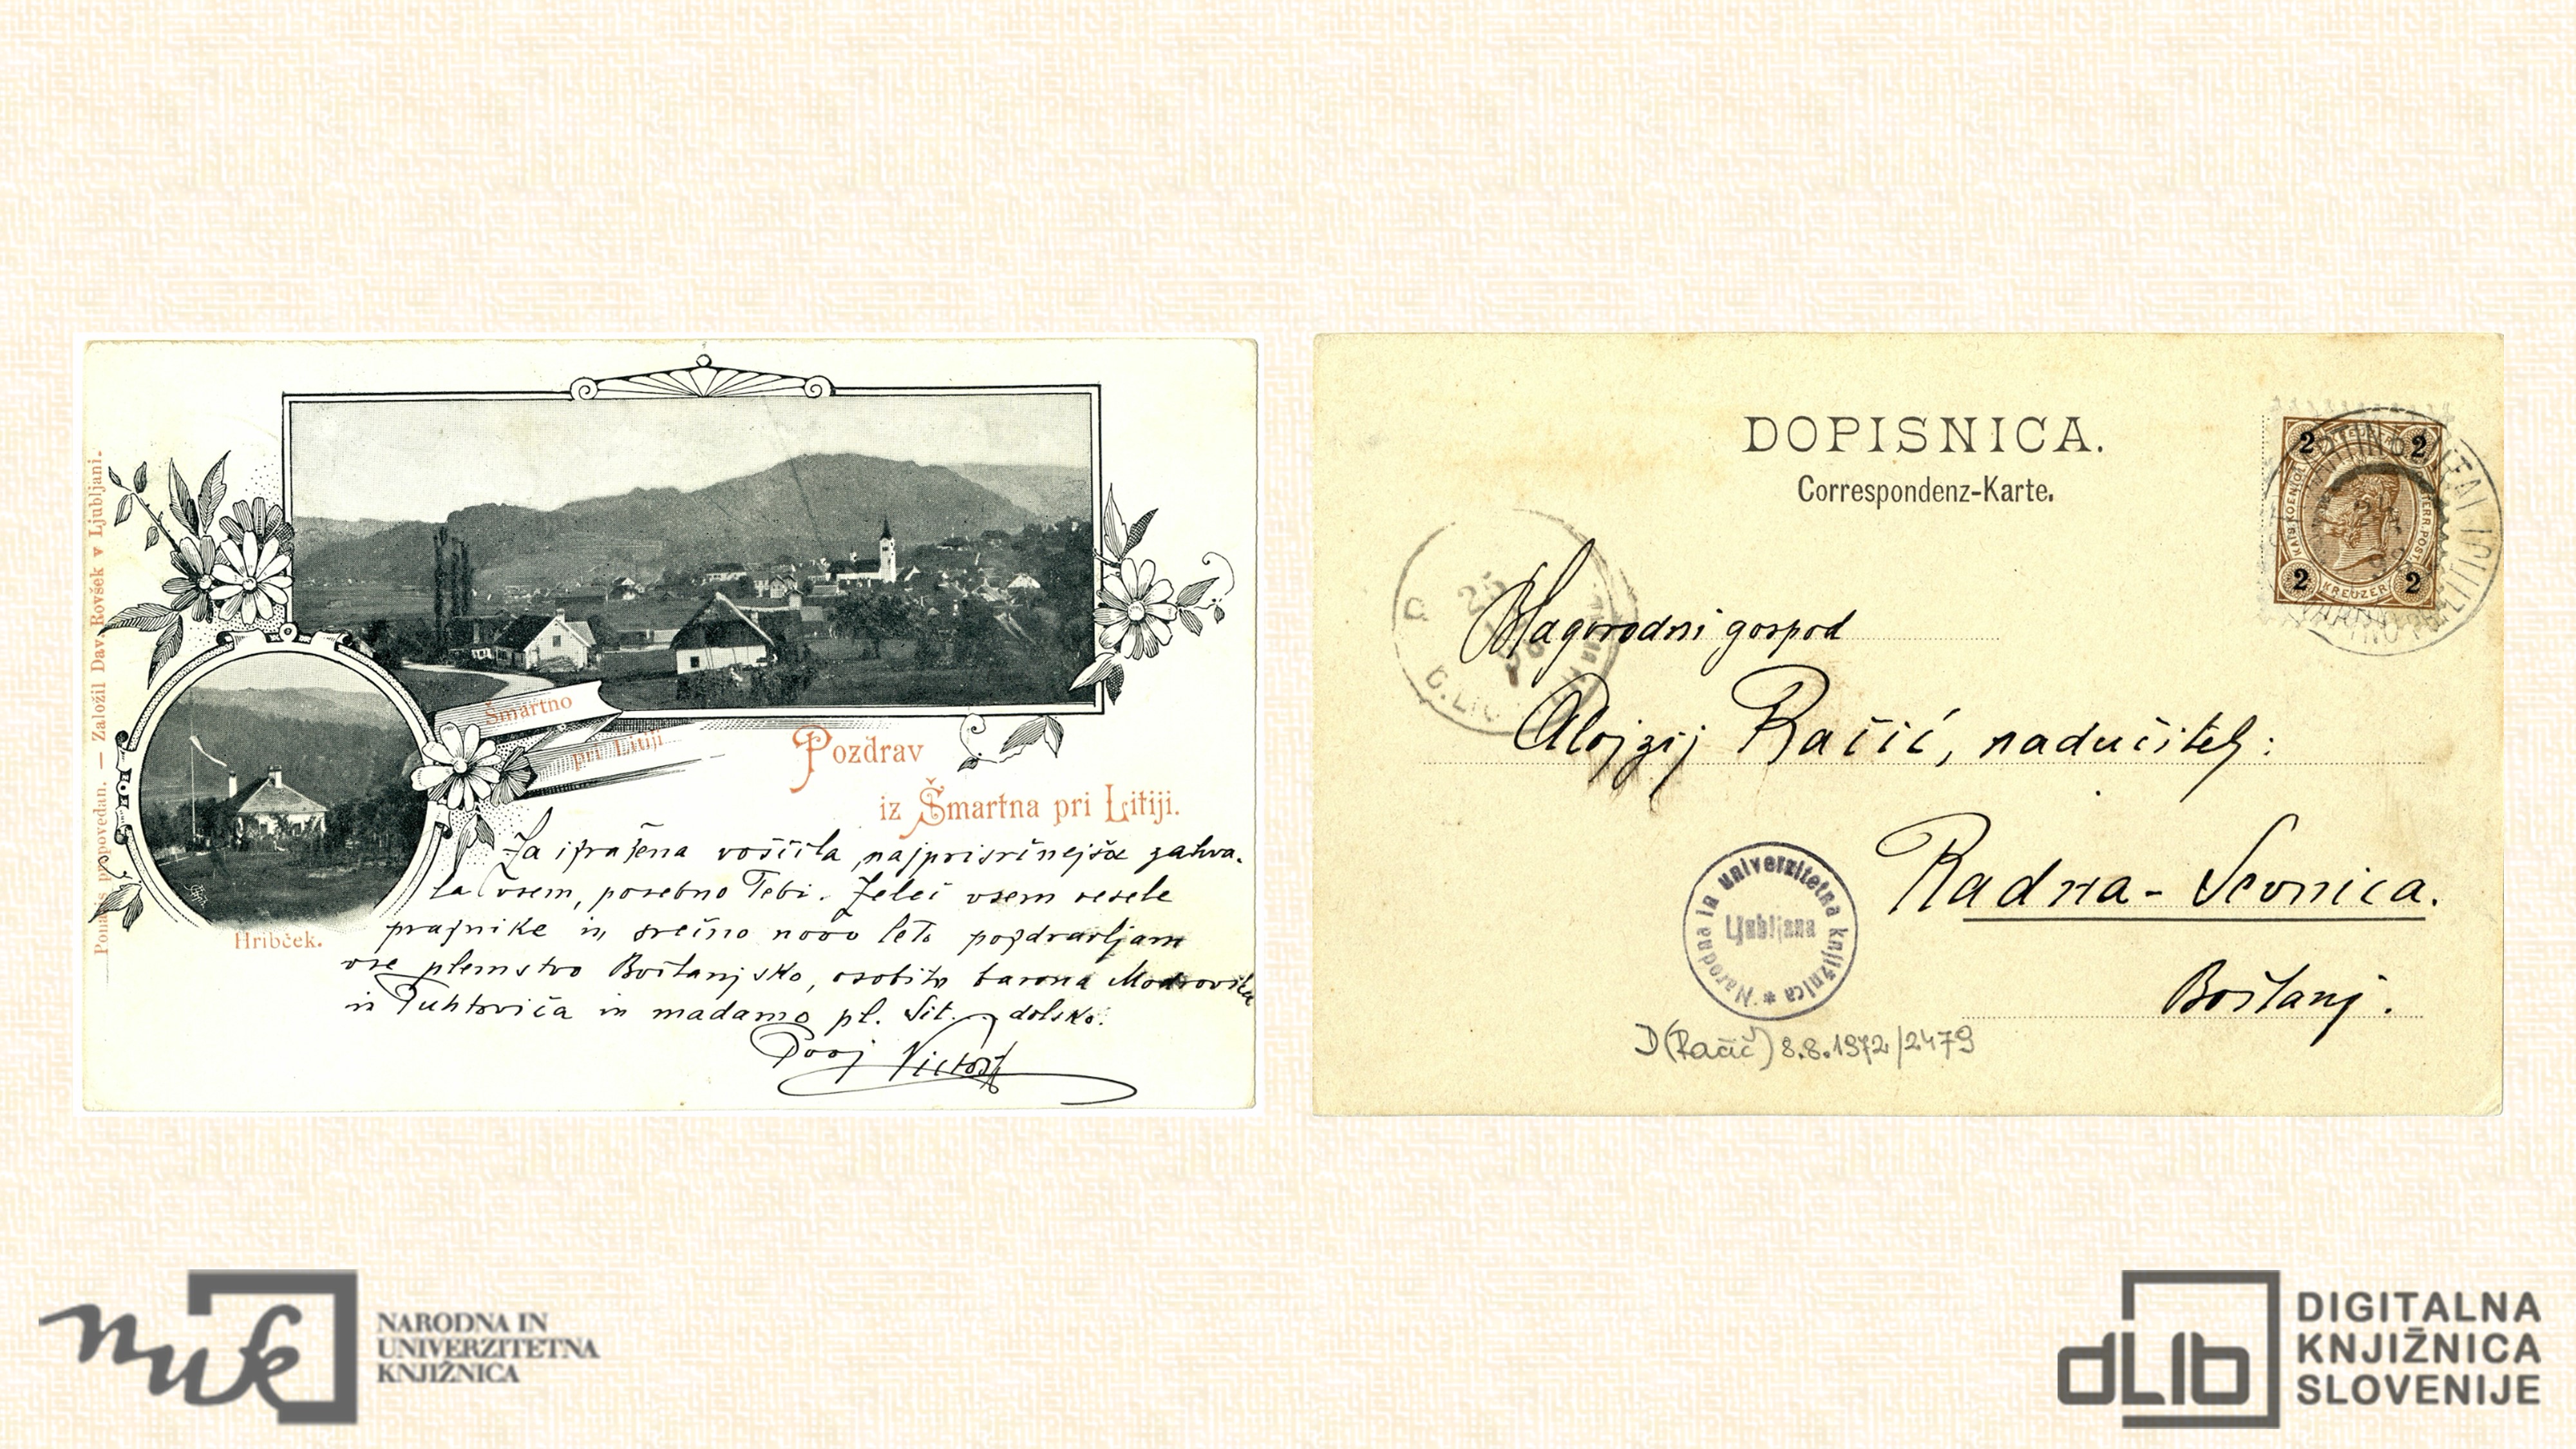 Ponatis prepovedan. — Založil Dav. Rovšek v Ljubljani.
Šmartno
pri Litiji
Pozdrav
iz Šmartna pri Litiji.
Hribček.
Za izražena voščila, najprisrčnejša zahva-
la vsem, posebno Tebi. Želeč vsem vesele
praznike in srečno novo leto pozdravljam
vse plemstvo Boštanjsko, osobito barona
in madamo pl. dolsko.
Tvoj Victor
DOPISNICA.
Correspondenz-Karte.
2 2
2 KREUZER 2
25
Blagorodni gospod
Alojzij Račić, nadučitelj:
Radna - Sevnica.
Boštanj.
Narodna in univerzitetna knjižnica *
Ljubljana
D (Račič) 8.8.1972/2479
nuk
NARODNA IN
UNIVERZITETNA
KNJIŽNICA
dLib
DIGITALNA
KNJIŽNICA
SLOVENIJE